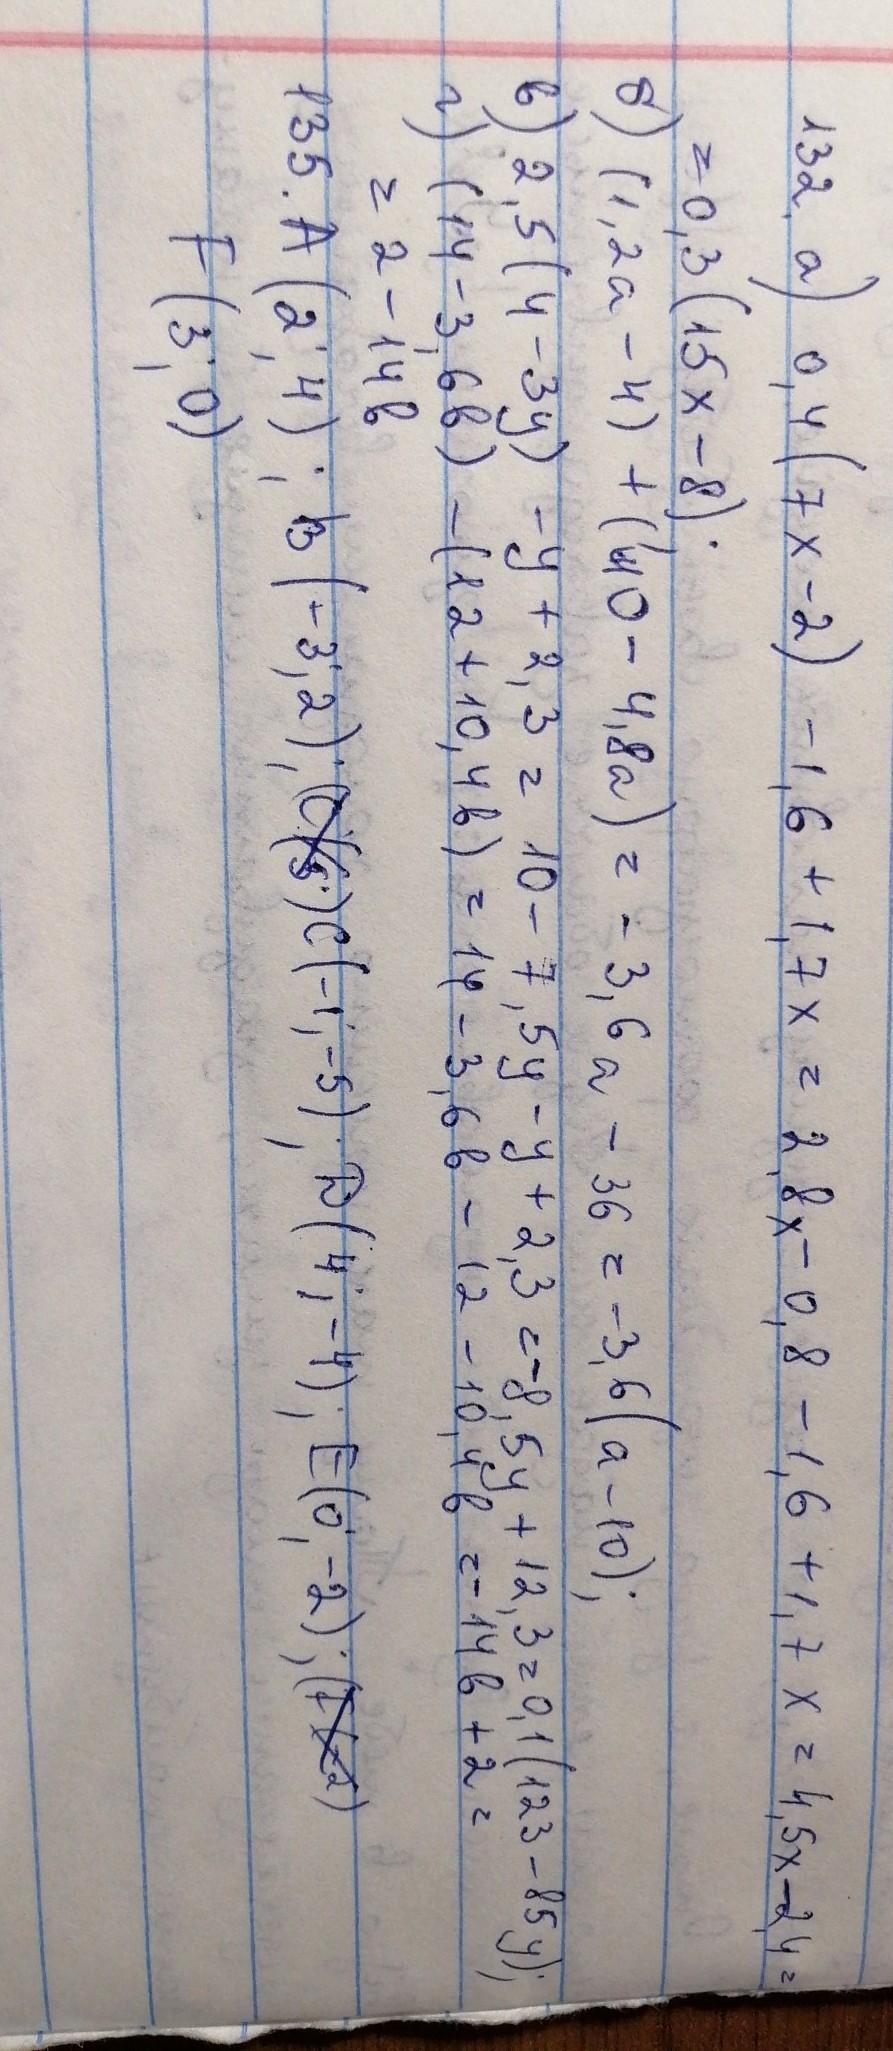 132. а) 0,4(7x-2) -1,6+1,7x = 2,8x-0,8-1,6+1,7x=4,5x-2,4=
=0,3(15x-8);
б) (1,2a-4)+(40-4,8a)=-3,6a-36=-3,6(a-10);
в) 2,5(4-3y)-y+2,3= 10-7,5y-y+2,3=-8,5y+12,3=0,1(123-85y);
г) (14-3,6b)-(12+10,4b)=14-3,6b-12-10,4b=-14b+2=
=2-14b
135. A(2;4); B(-3;2); C(-1;-5); D(4;-4); E(0;-2);
F(3;0)